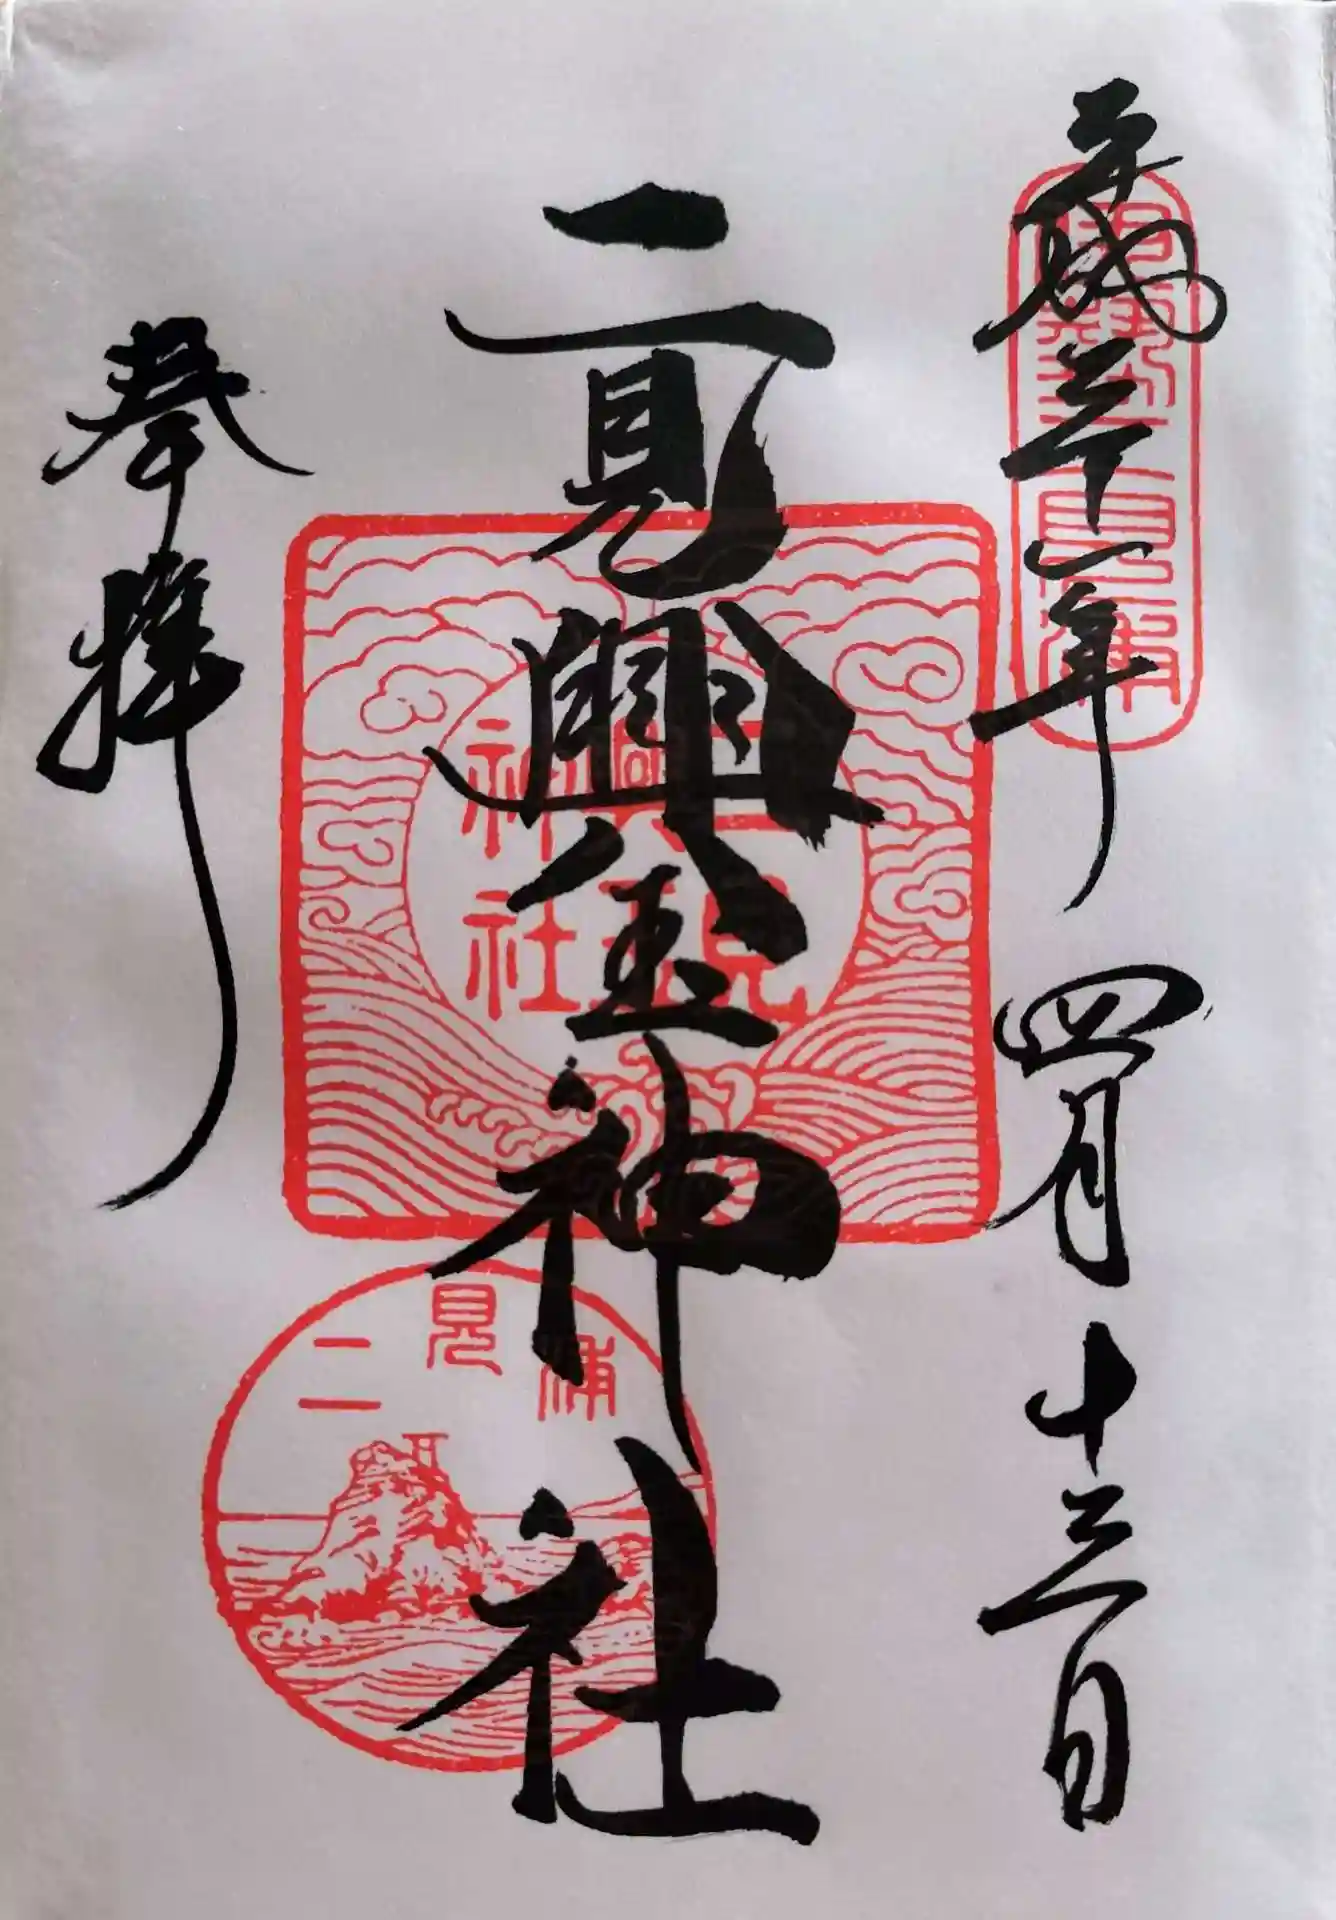 平成三十一年 四月十三日
伊勢二見浦
二見興玉神社
二見興玉神社
二見浦
奉拝